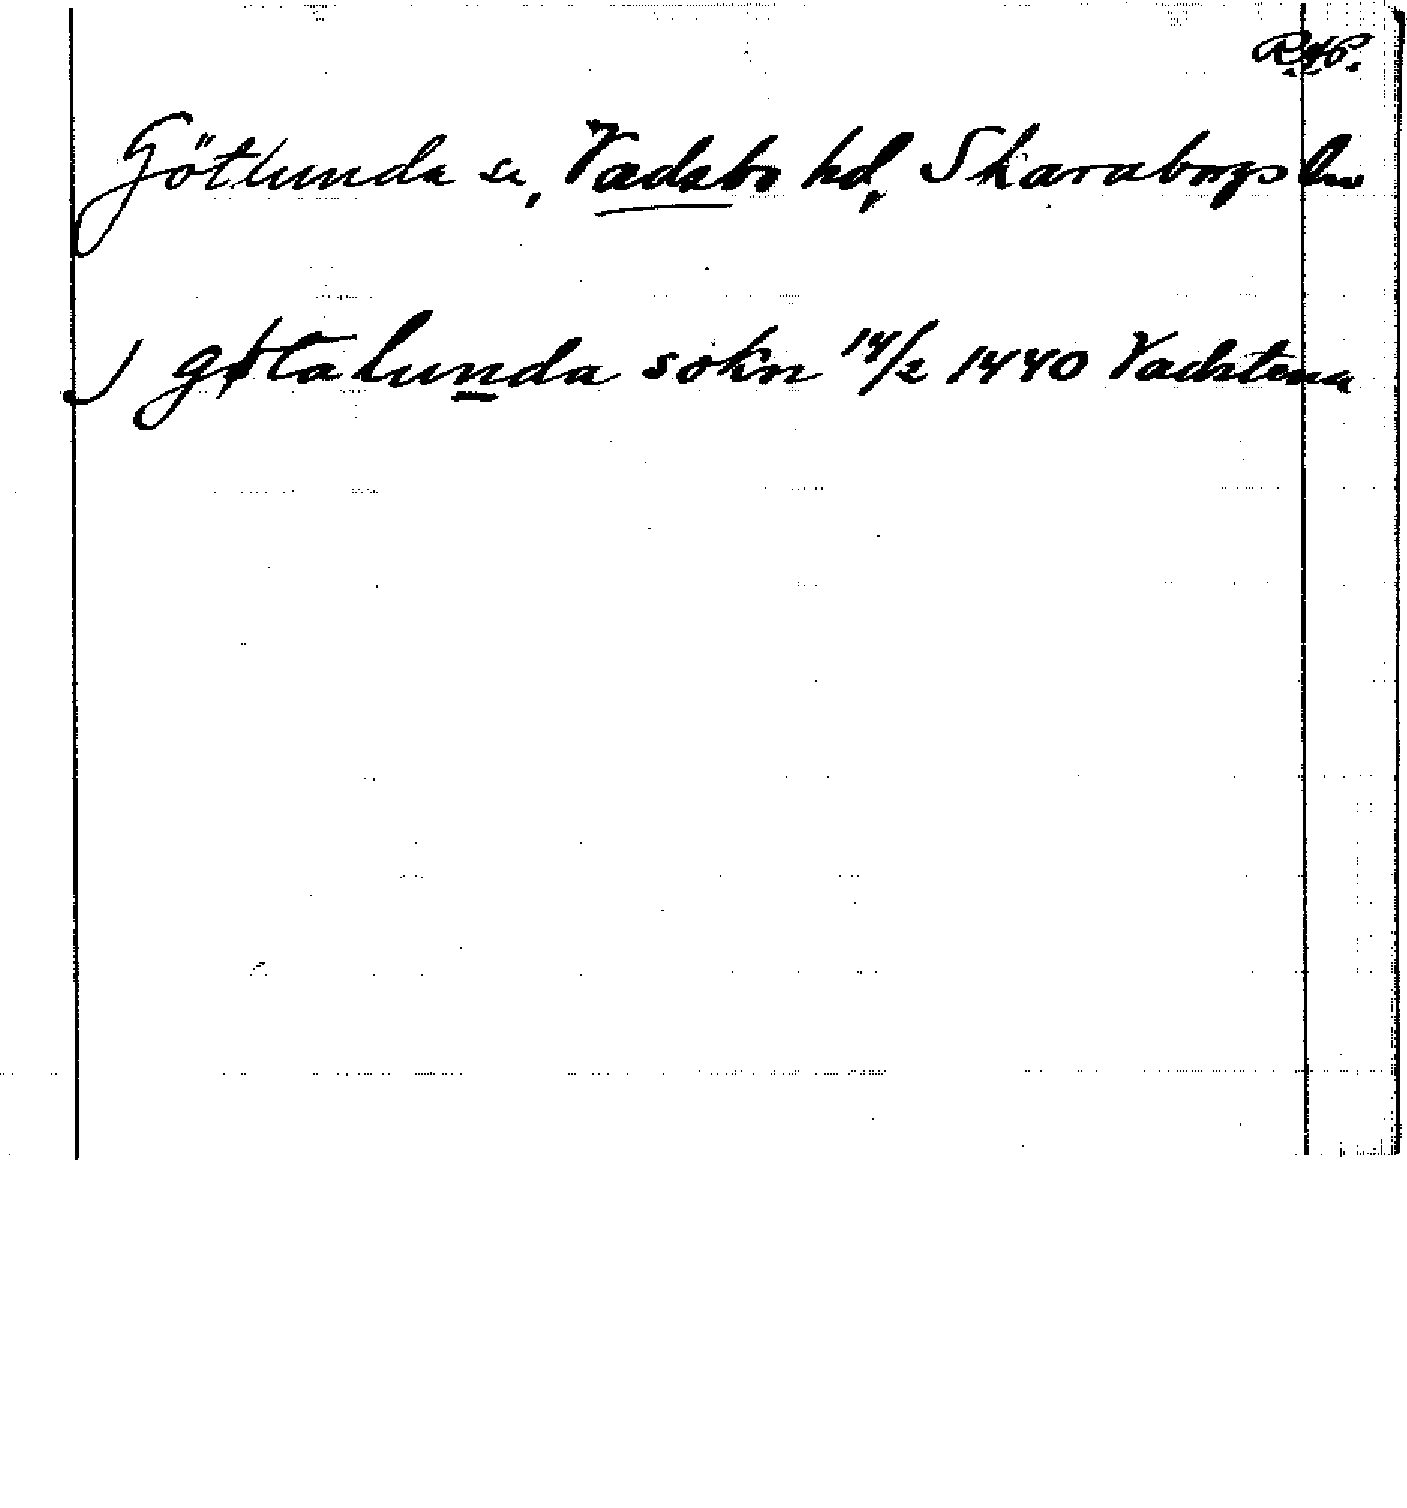 R.A.P.
Götlunda sn, Vadsbo hd, Skaraborgs län
J gøtalunda sokn 14/2 1440 Vadstena